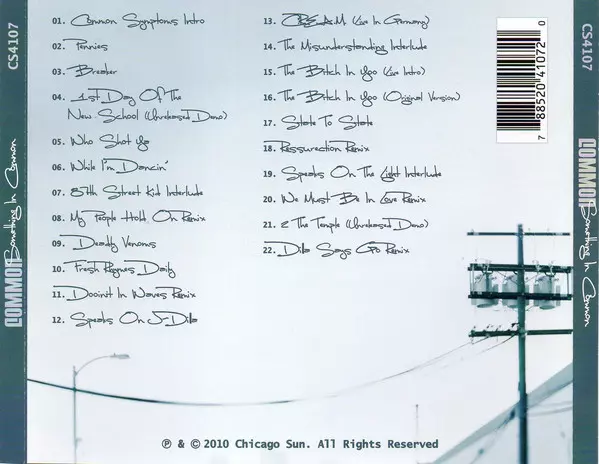 CS4107
COMMON Something In Common
01. Common Symptoms Intro
02. Pennies
03. Breaker
04. 1st Day Of The
New School (Unreleased Demo)
05. Who Shot Ya
06. While I'm Dancin'
07. 87th Street Kid Interlude
08. My People Hold On Remix
09. Deadly Venoms
10. Fresh Rhymes Daily
11. Dooinit In Waves Remix
12. Speaks On J-Dilla
13. C.R.E.A.M. (Live In Germany)
14. The Misunderstanding Interlude
15. The Bitch In Yoo (Live Intro)
16. The Bitch In Yoo (Original Version)
17. State To State
18. Ressurection Remix
19. Speaks On The Light Interlude
20. We Must Be In Love Remix
21. 2 The Temple (Unreleased Demo)
22. Dilla Says Go Remix
7 88520 41072 0
℗ & © 2010 Chicago Sun. All Rights Reserved
CS4107
COMMON Something In Common